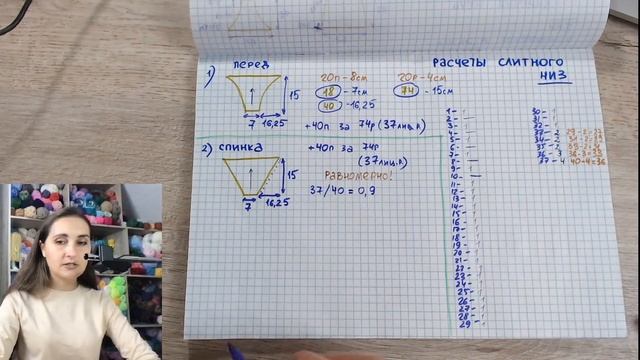 РАСЧЕТЫ СЛИТНОГО
НИЗ
1) ПЕРЕД
15
7 16,25
20п - 8см
18 - 7см
40 - 16,25
20р - 4см
74 - 15см
+40п за 74р (37лиц.р)
2) СПИНКА
15
7 16,25
+40п за 74р
(37лиц.р)
РАВНОМЕРНО!
37/40 = 0,9
1 -
2 -
3 -
4 -
5 -
6 -
7 -
8 -
9 -
10 -
11 -
12 -
13 -
14 -
15 -
16 -
17 -
18 -
19 -
20 -
21 -
22 -
23 -
24 -
25 -
26 -
27 -
28 -
29 -
30 -
31 -
32 -
33 - 2
34 - 2
35 - 2
36 - 3
37 - 4 40-4=36